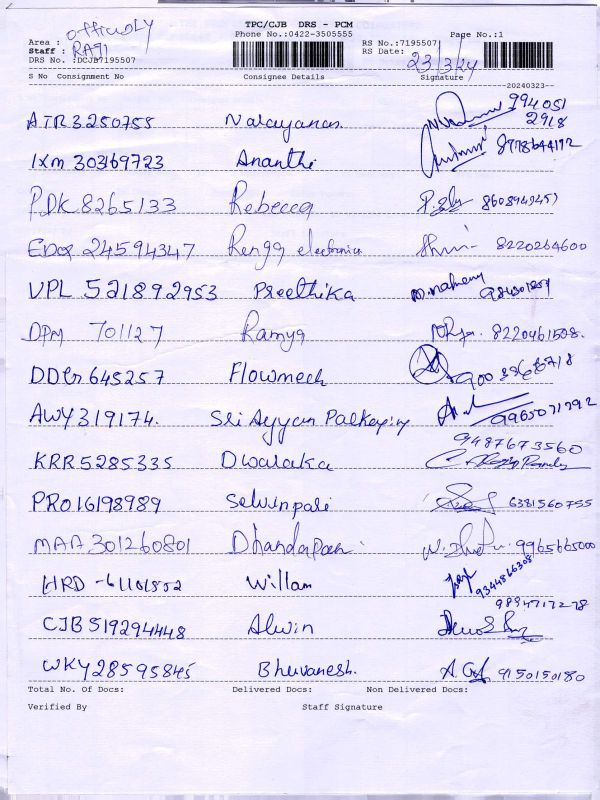 TPC/CJB DRS - PCM
Phone No.:0422-3505555 Page No.:1
Area : officially
Staff : RAJI RS No.:7195507
DRS No. :DCJB7195507 RS Date: 23/3/24
S No Consignment No Consignee Details Signature
20240323
ATR3250755 Narayanan 994051
2918
IXM 30369723 Ananthi 8778644192
PDK 8265133 Rebecca
24594347 Renga electronics 8220264600
VPL 521892953 Preethika
DPM 701127 Ramya 8220461508
645257 Flowmech
AWY319174. Sri Ayyan 9965071792
9487673560
KRR5285335 Dwaraka
PRO16198989 Selvinpali 6381560755
MAA 301260801 Dhandapani 9965665000
HRD - 61101852 Willam 9344866308
9894717278
CJB519294448 Alwin
WKY28595845 Bhuvanesh. 9150150180
Total No. Of Docs: Delivered Docs: Non Delivered Docs:
Verified By Staff Signature